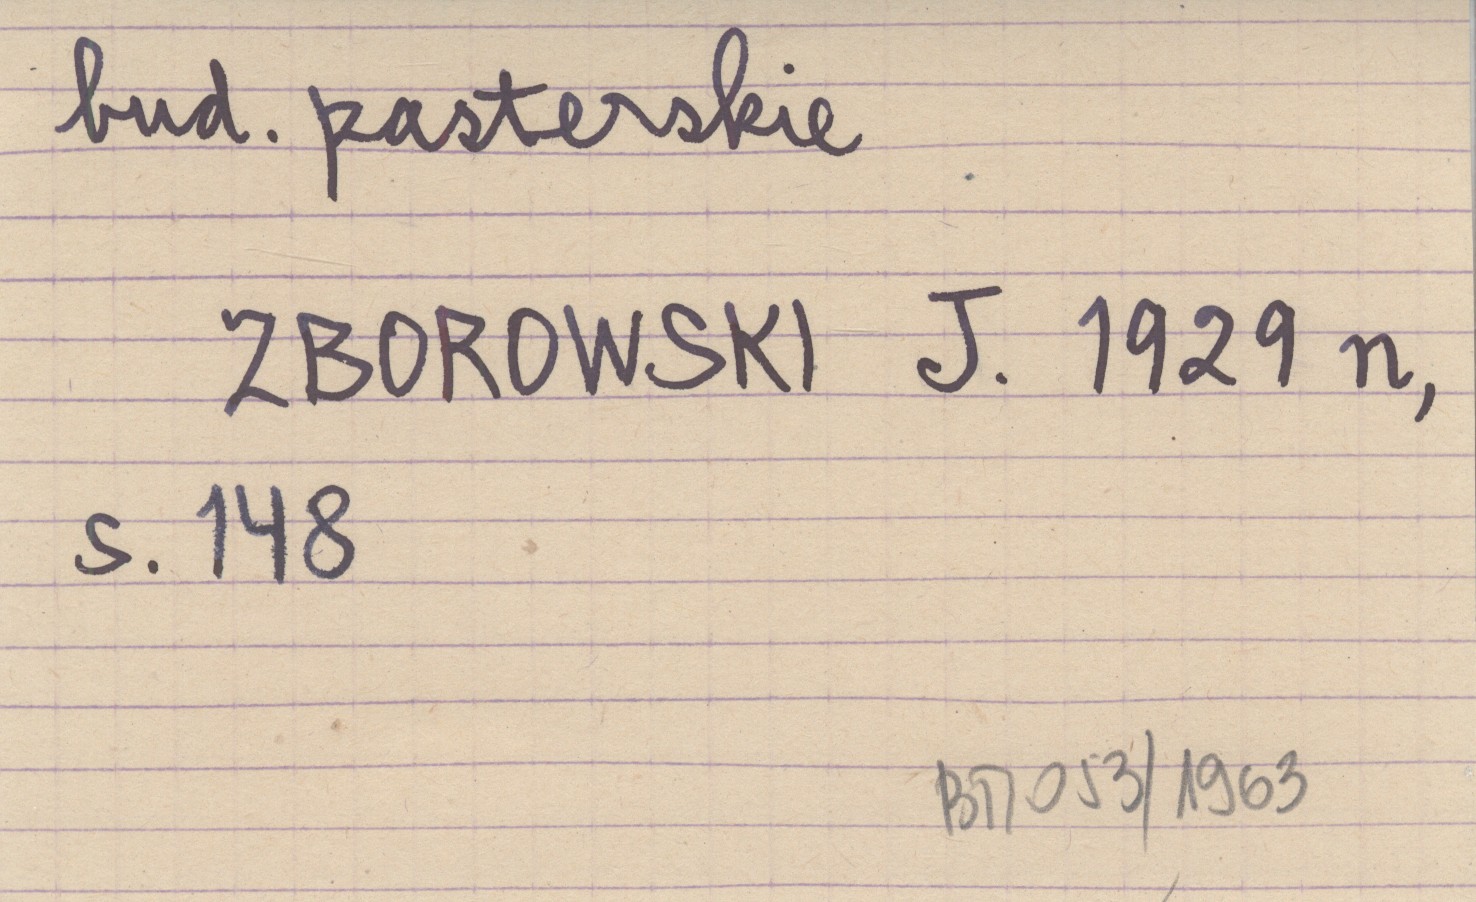 bud. pasterskie
ZBOROWSKI J. 1929 n,
s. 148
053/1963